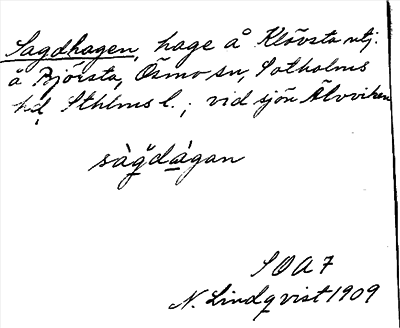 Sagdhagen, hage å Klövsta utj.
å Björsta, Ösmo sn, Sotholms
hd, Sthlms l.; vid sjön Älvviken
sàgdàgan
SOA7
N. Lindqvist 1909